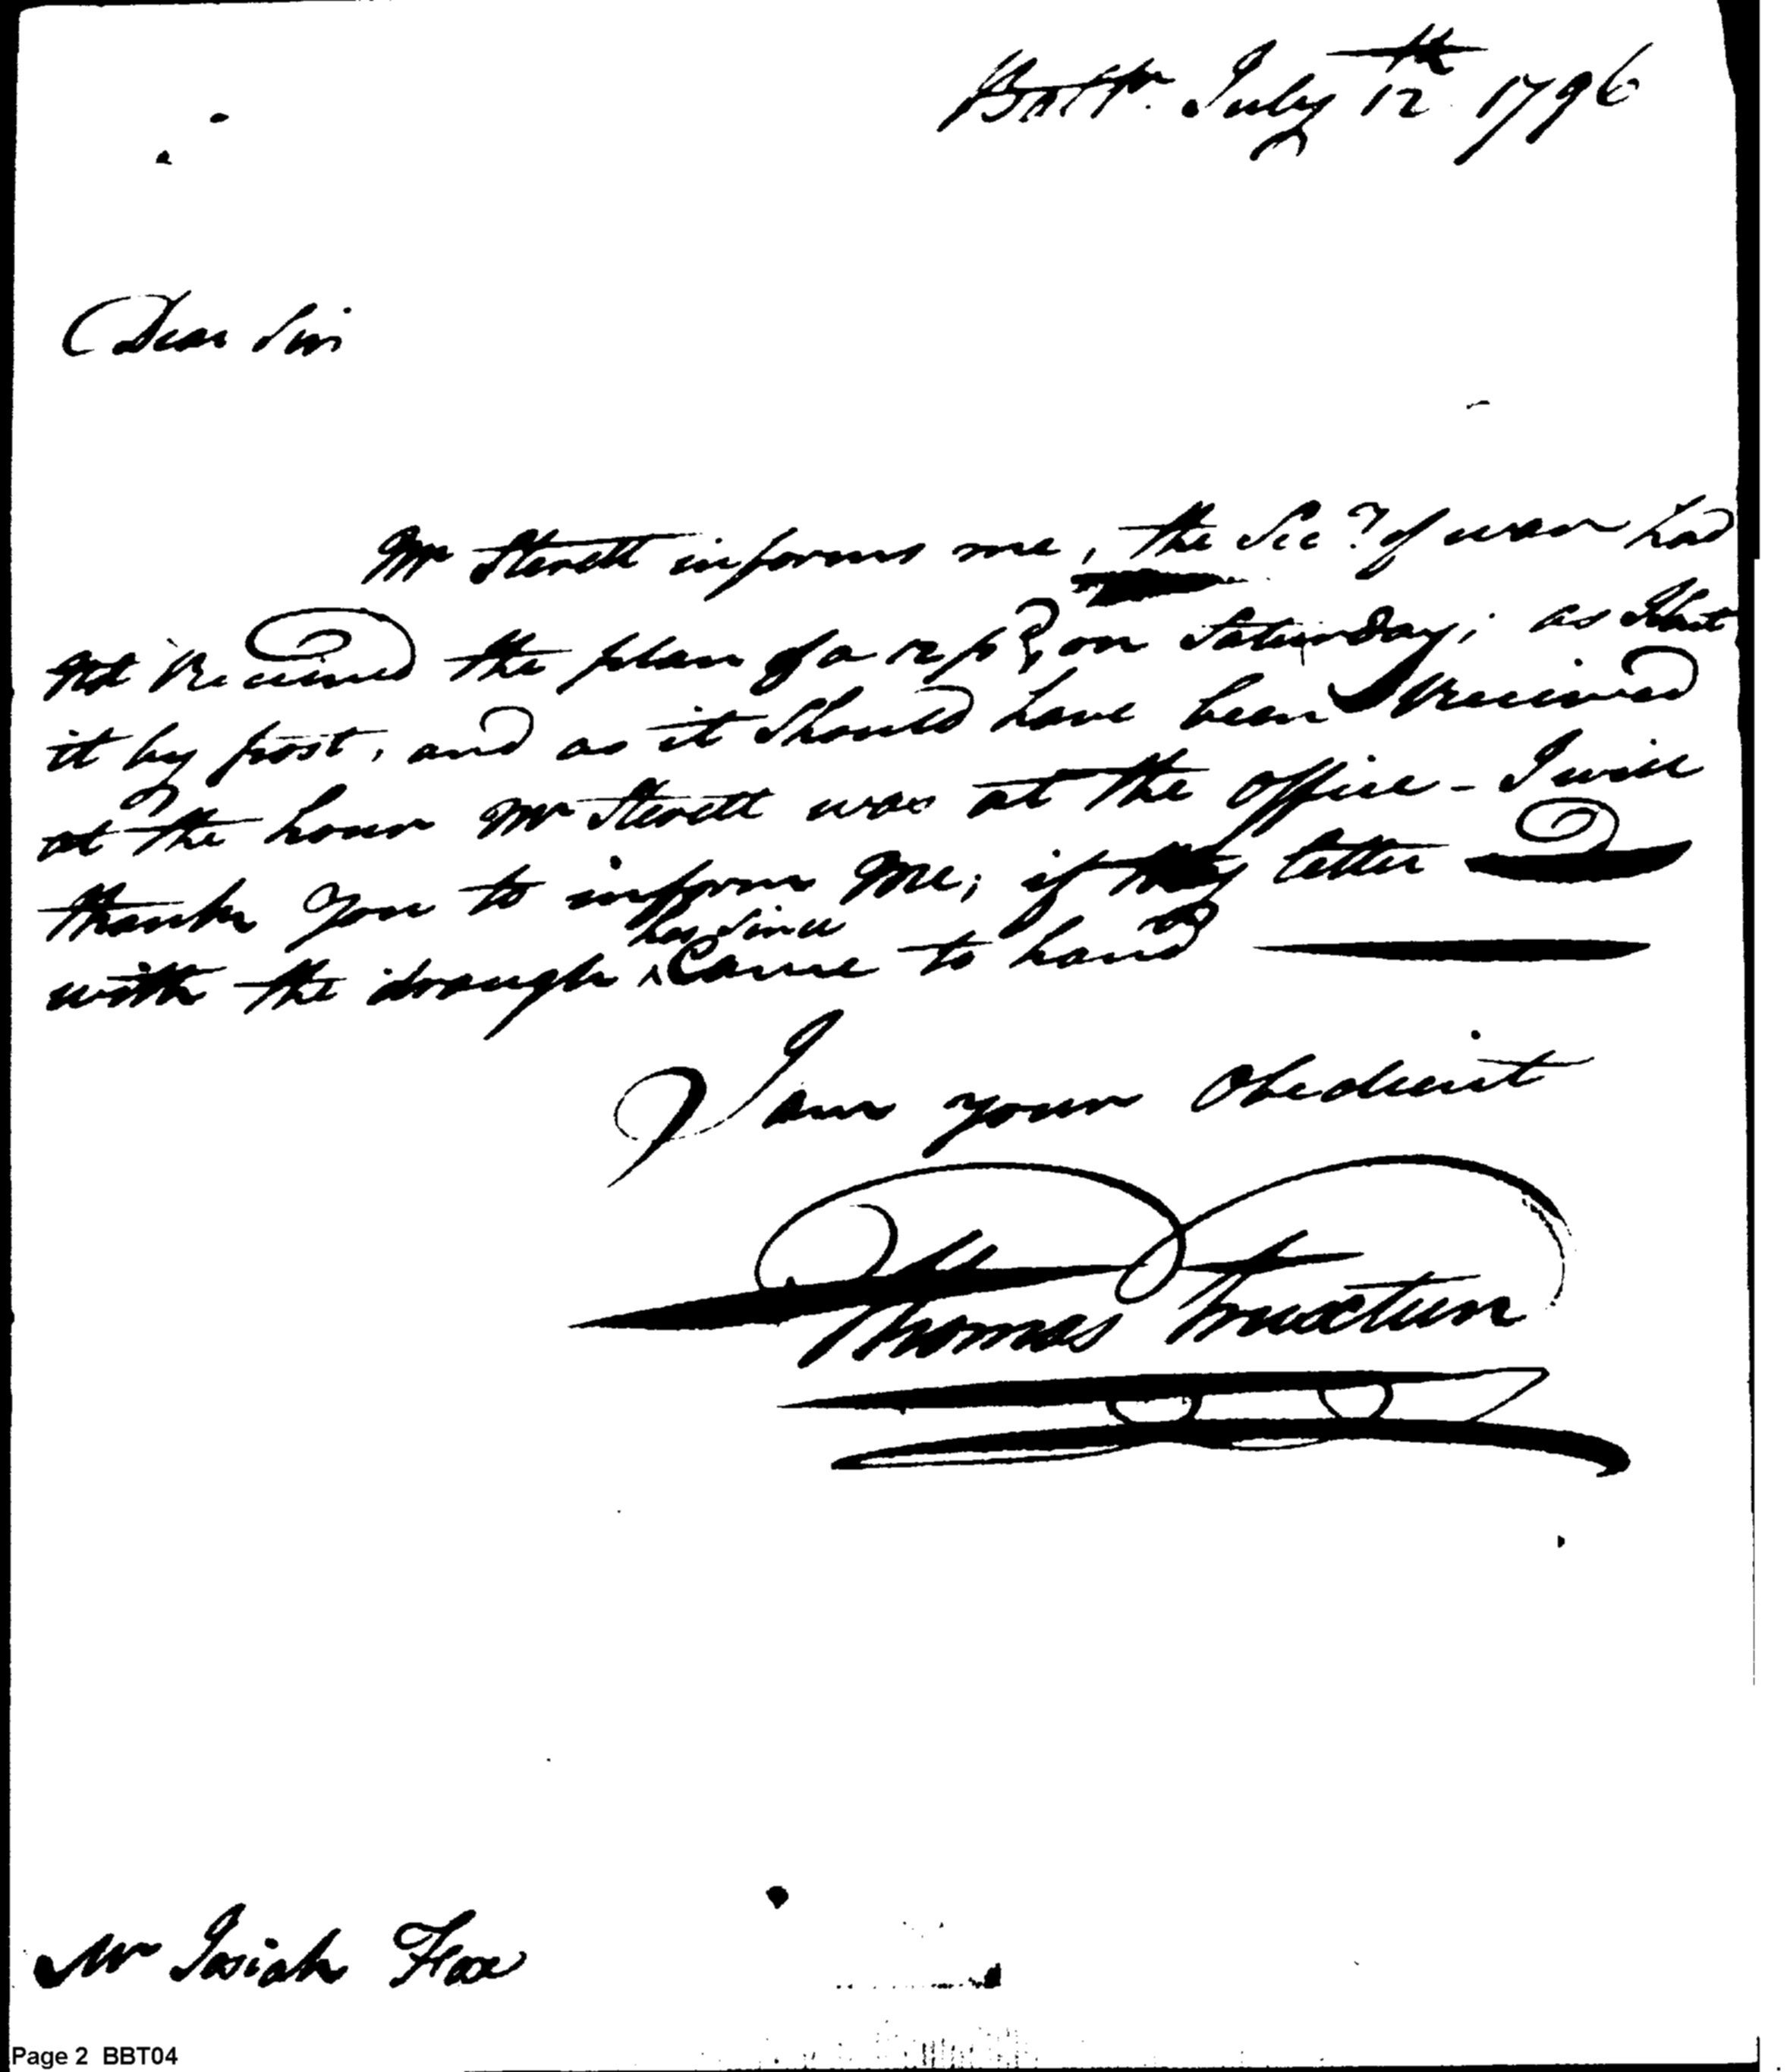 Baltr. July 12th 1796
Dear Sir
Mr Sterett informs me, the Secy of war had
not Received the plan of a on Saturday; as I sent
it by post, and as it Should have been Received
at the hour Mr Sterett was at the office - I will
thank you to inform me; if my letter
has since
with the draugh Came to hand
I am your Obedient
Thomas Truxtun
Mr Josiah Fox
Page 2 BBT04